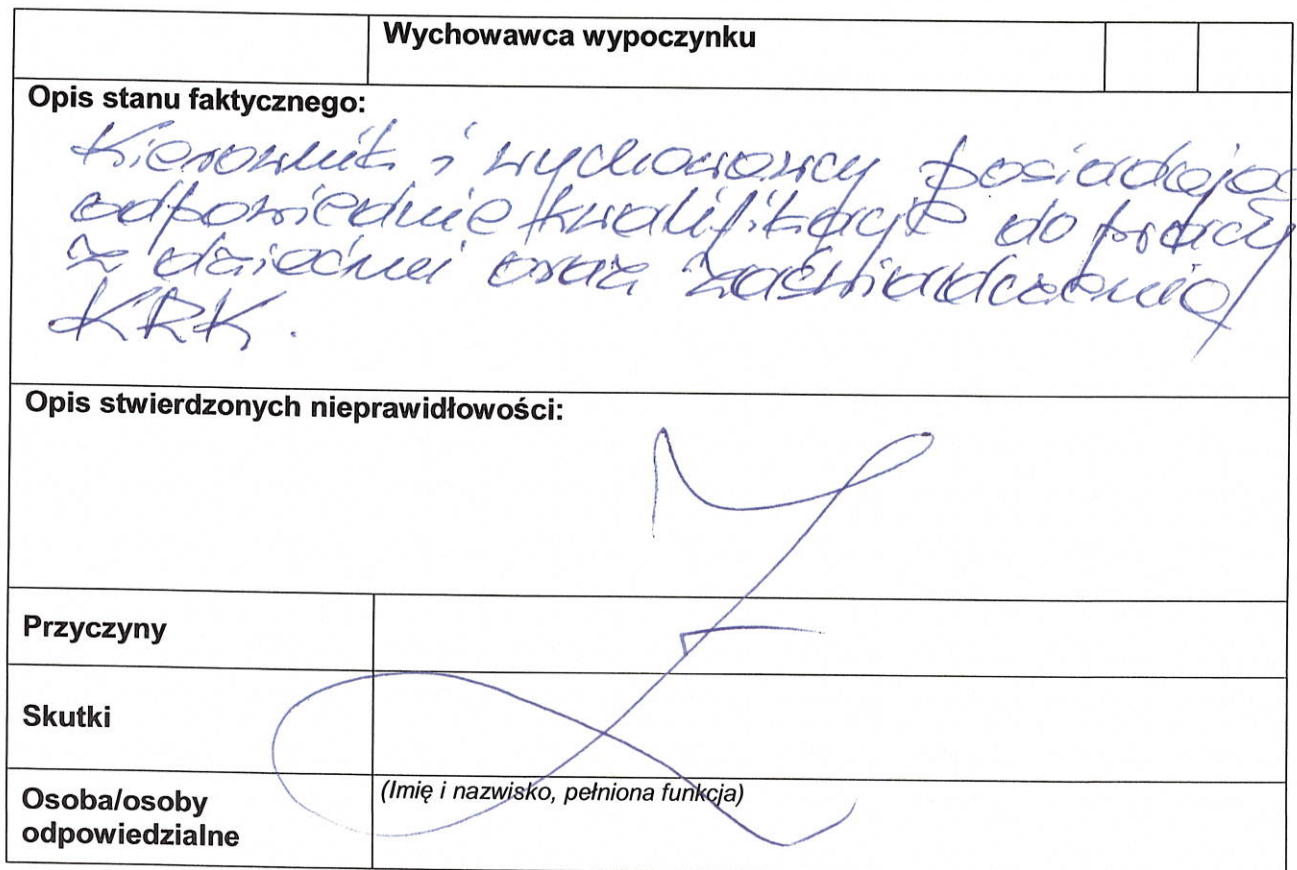 Wychowawca wypoczynku
Opis stanu faktycznego:
Kierownik i wychowawcy posiadają
odpowiednie kwalifikacje do pracy
z dziećmi oraz zaświadczenia
KRK.
Opis stwierdzonych nieprawidłowości:
Przyczyny
Skutki
Osoba/osoby
odpowiedzialne
(Imię i nazwisko, pełniona funkcja)